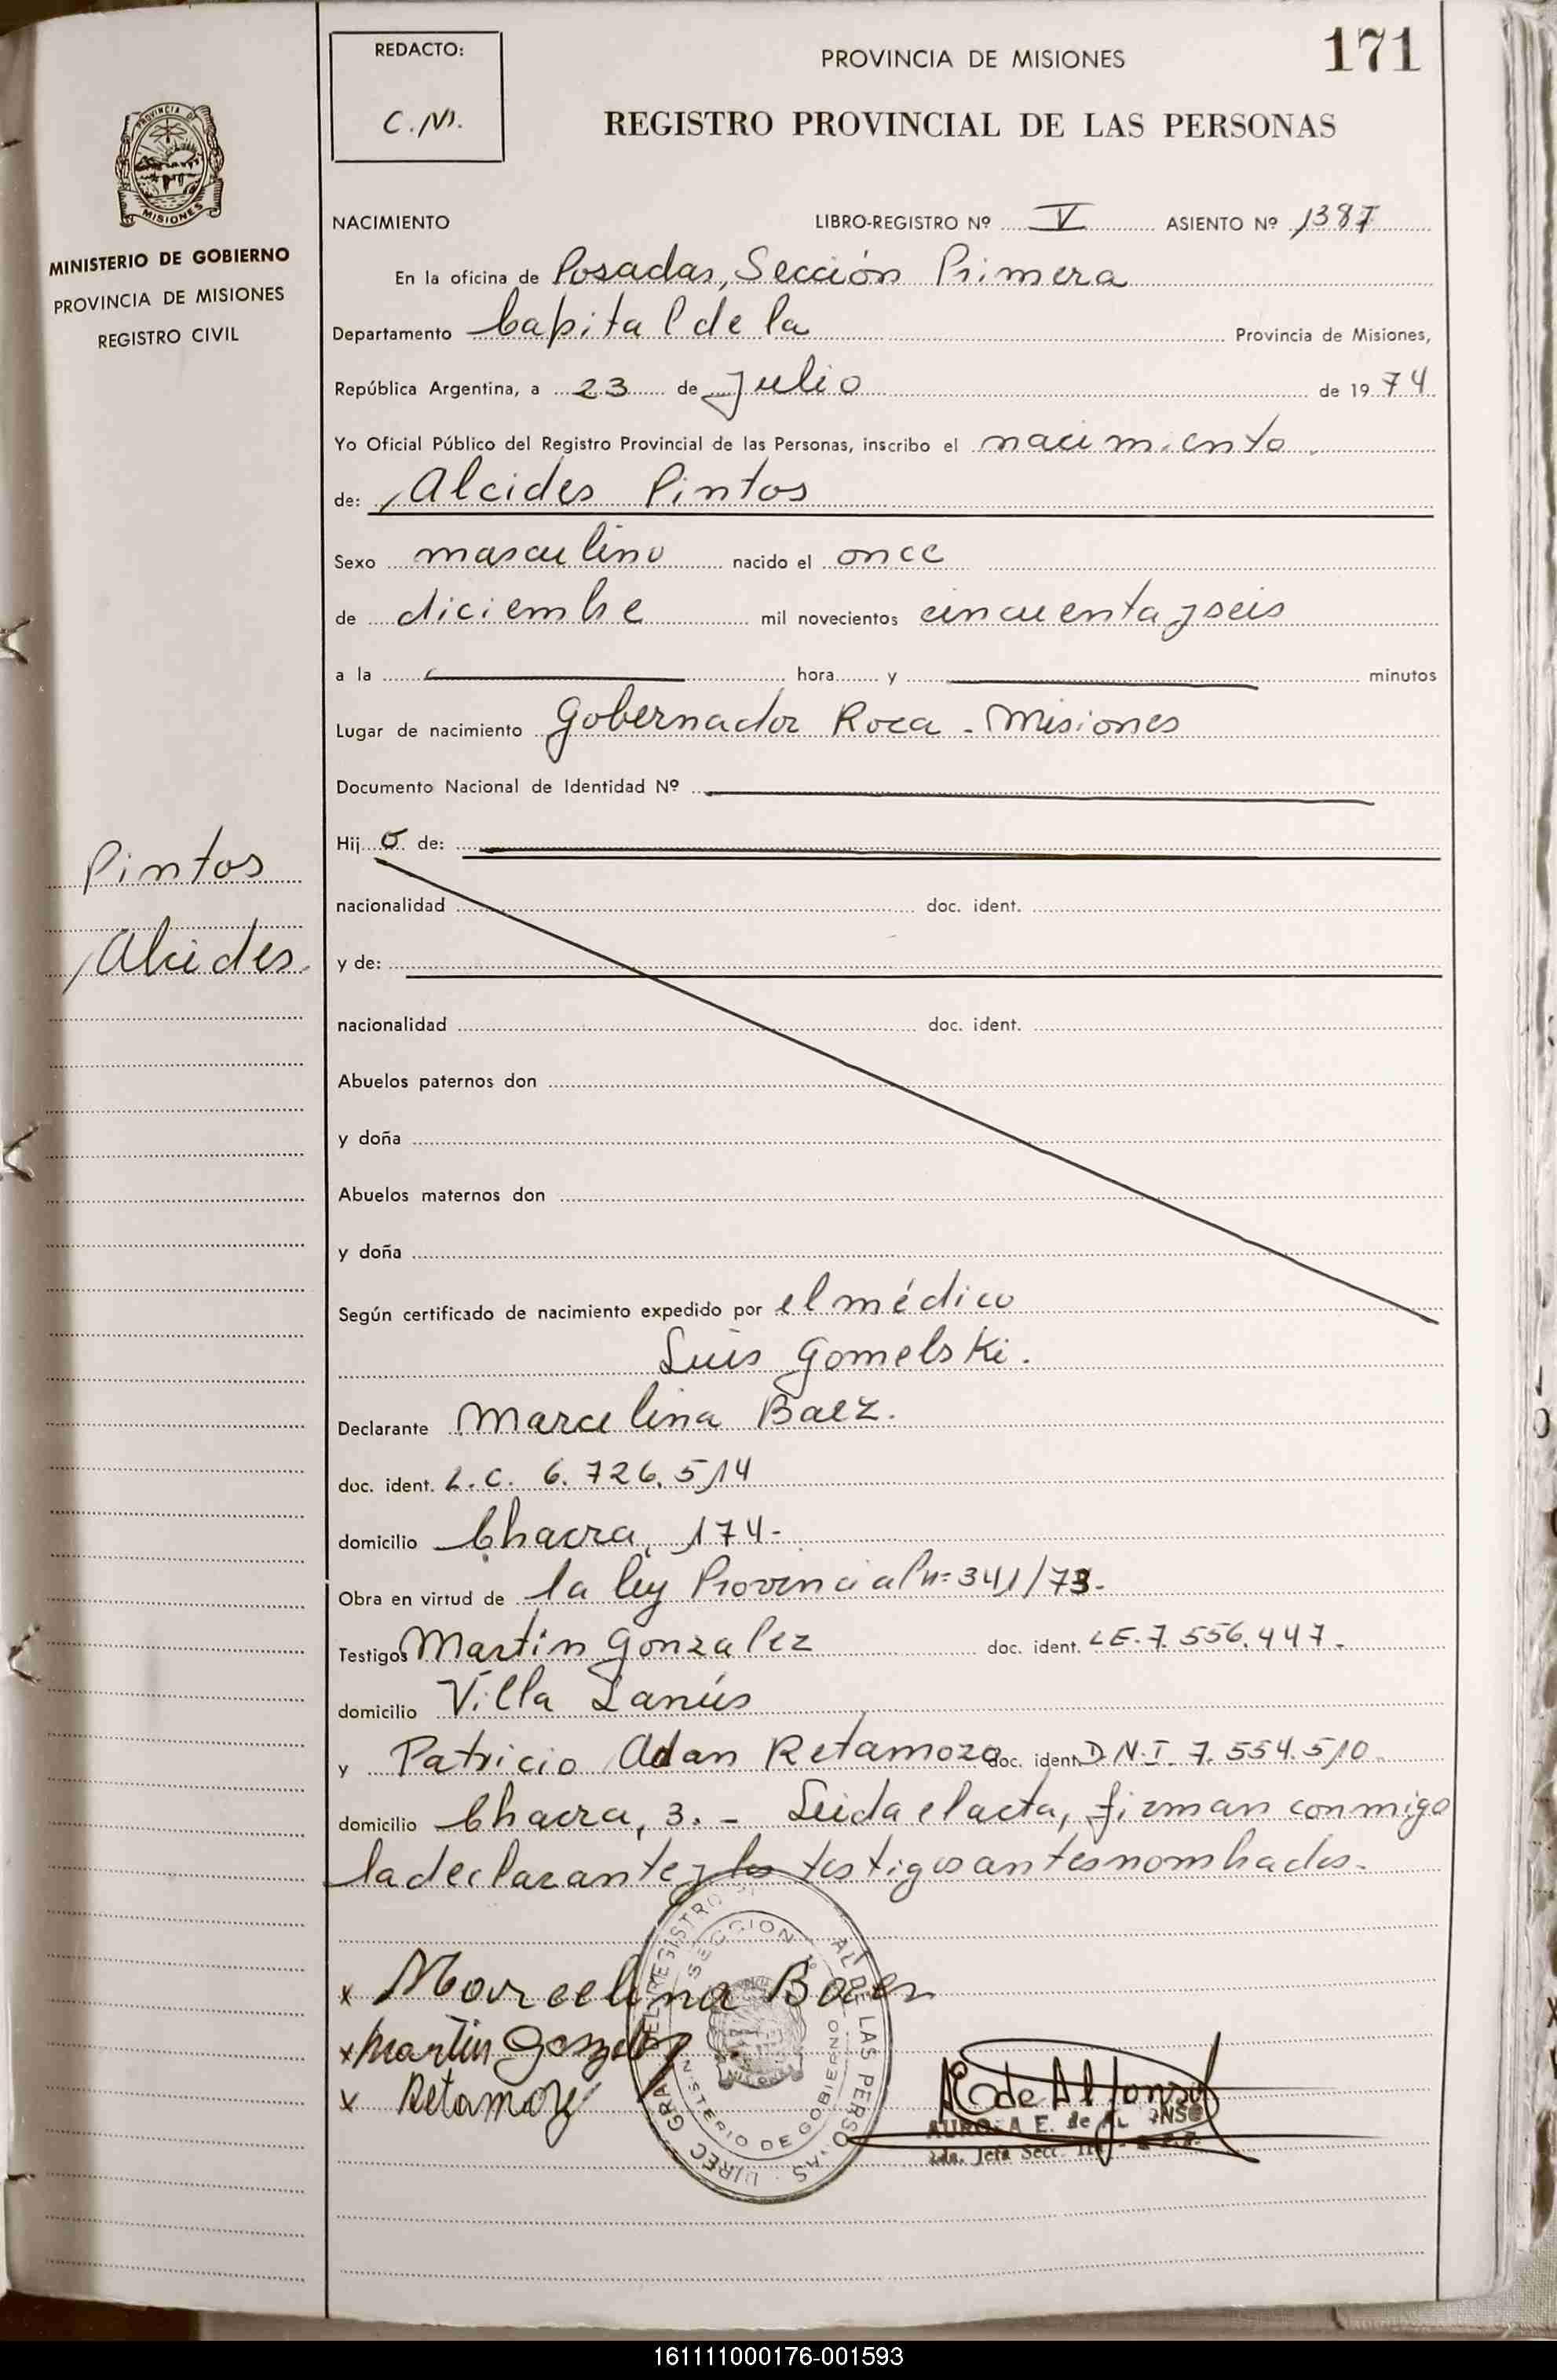 171
REDACTO:
C.M.
PROVINCIA DE MISIONES
REGISTRO PROVINCIAL DE LAS PERSONAS
PROVINCIA DE
MISIONES
MINISTERIO DE GOBIERNO
PROVINCIA DE MISIONES
REGISTRO CIVIL
NACIMIENTO LIBRO-REGISTRO Nº V ASIENTO Nº 1387
En la oficina de Posadas, Sección Primera
Departamento Capital de la Provincia de Misiones,
República Argentina, a 23 de Julio de 1974
Yo Oficial Público del Registro Provincial de las Personas, inscribo el nacimiento
de: Alcides Pintos
Sexo masculino nacido el once
de diciembre mil novecientos cincuenta y seis
a la hora y minutos
Lugar de nacimiento Gobernador Roca - Misiones
Documento Nacional de Identidad Nº
Hijo de:
Pintos
Alcides.
nacionalidad doc. ident.
y de:
nacionalidad doc. ident.
Abuelos paternos don
y doña
Abuelos maternos don
y doña
Según certificado de nacimiento expedido por el médico
Luis Gomelski.
Declarante Marcelina Baez.
doc. ident. L.C. 6.726.514
domicilio Chacra, 174-
Obra en virtud de la ley Provincial nº 341/73.
Testigos Martin Gonzalez doc. ident. LE. 7.556.447.
domicilio Villa Lanús
y Patricio Adan Retamozo doc. ident. D.N.I. 7.554.510
domicilio Chacra, 3. - Leida el acta, firman conmigo
la declarante y los testigos antes nombrados.
x Marcelina Baez
x Martin Gonzalez
x Retamozo
SECCION
MINISTERIO DE GOBIERNO
E. de Alfonso
E. de
Jefa Secc.
161111000176-001593